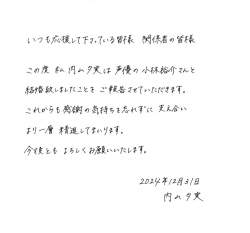 いつも応援して下さっている皆様 関係者の皆様
この度 私 内山夕実は 声優の 小林裕介さんと
結婚致しましたことを ご報告させていただきます。
これからも感謝の気持ちを忘れずに 支え合い
より一層 精進してまいります。
今後とも よろしくお願いいたします。
2024年12月31日
内山夕実